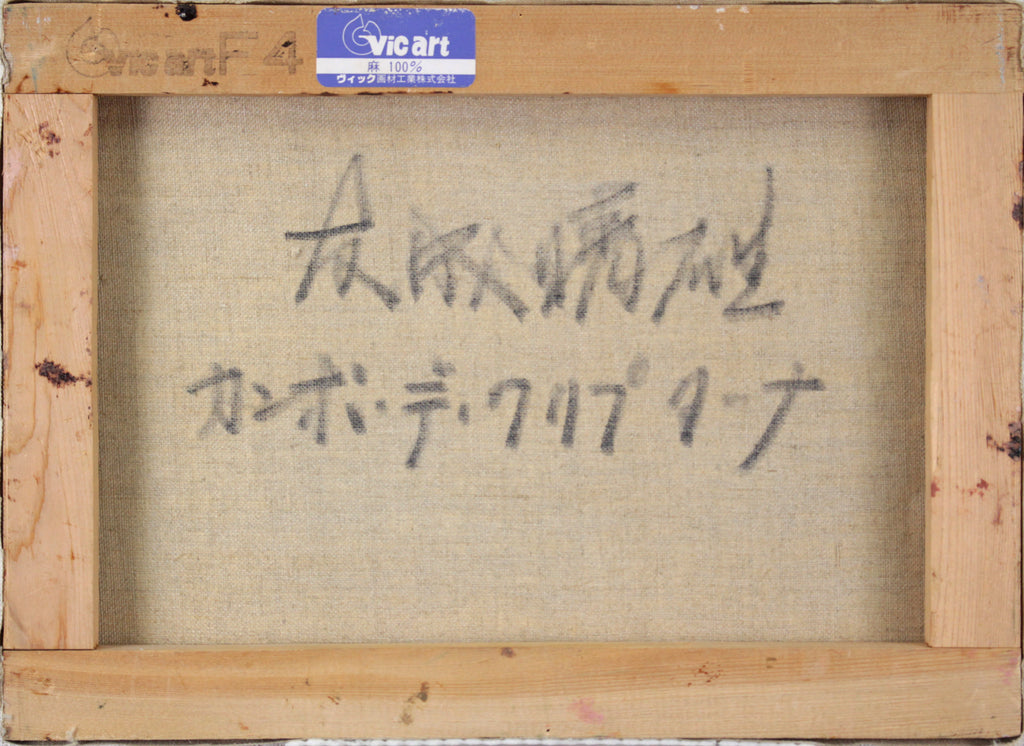 Vic art F 4
Vic art
麻 100%
ヴィック画材工業株式会社
カンポ・デ・クリプターナ